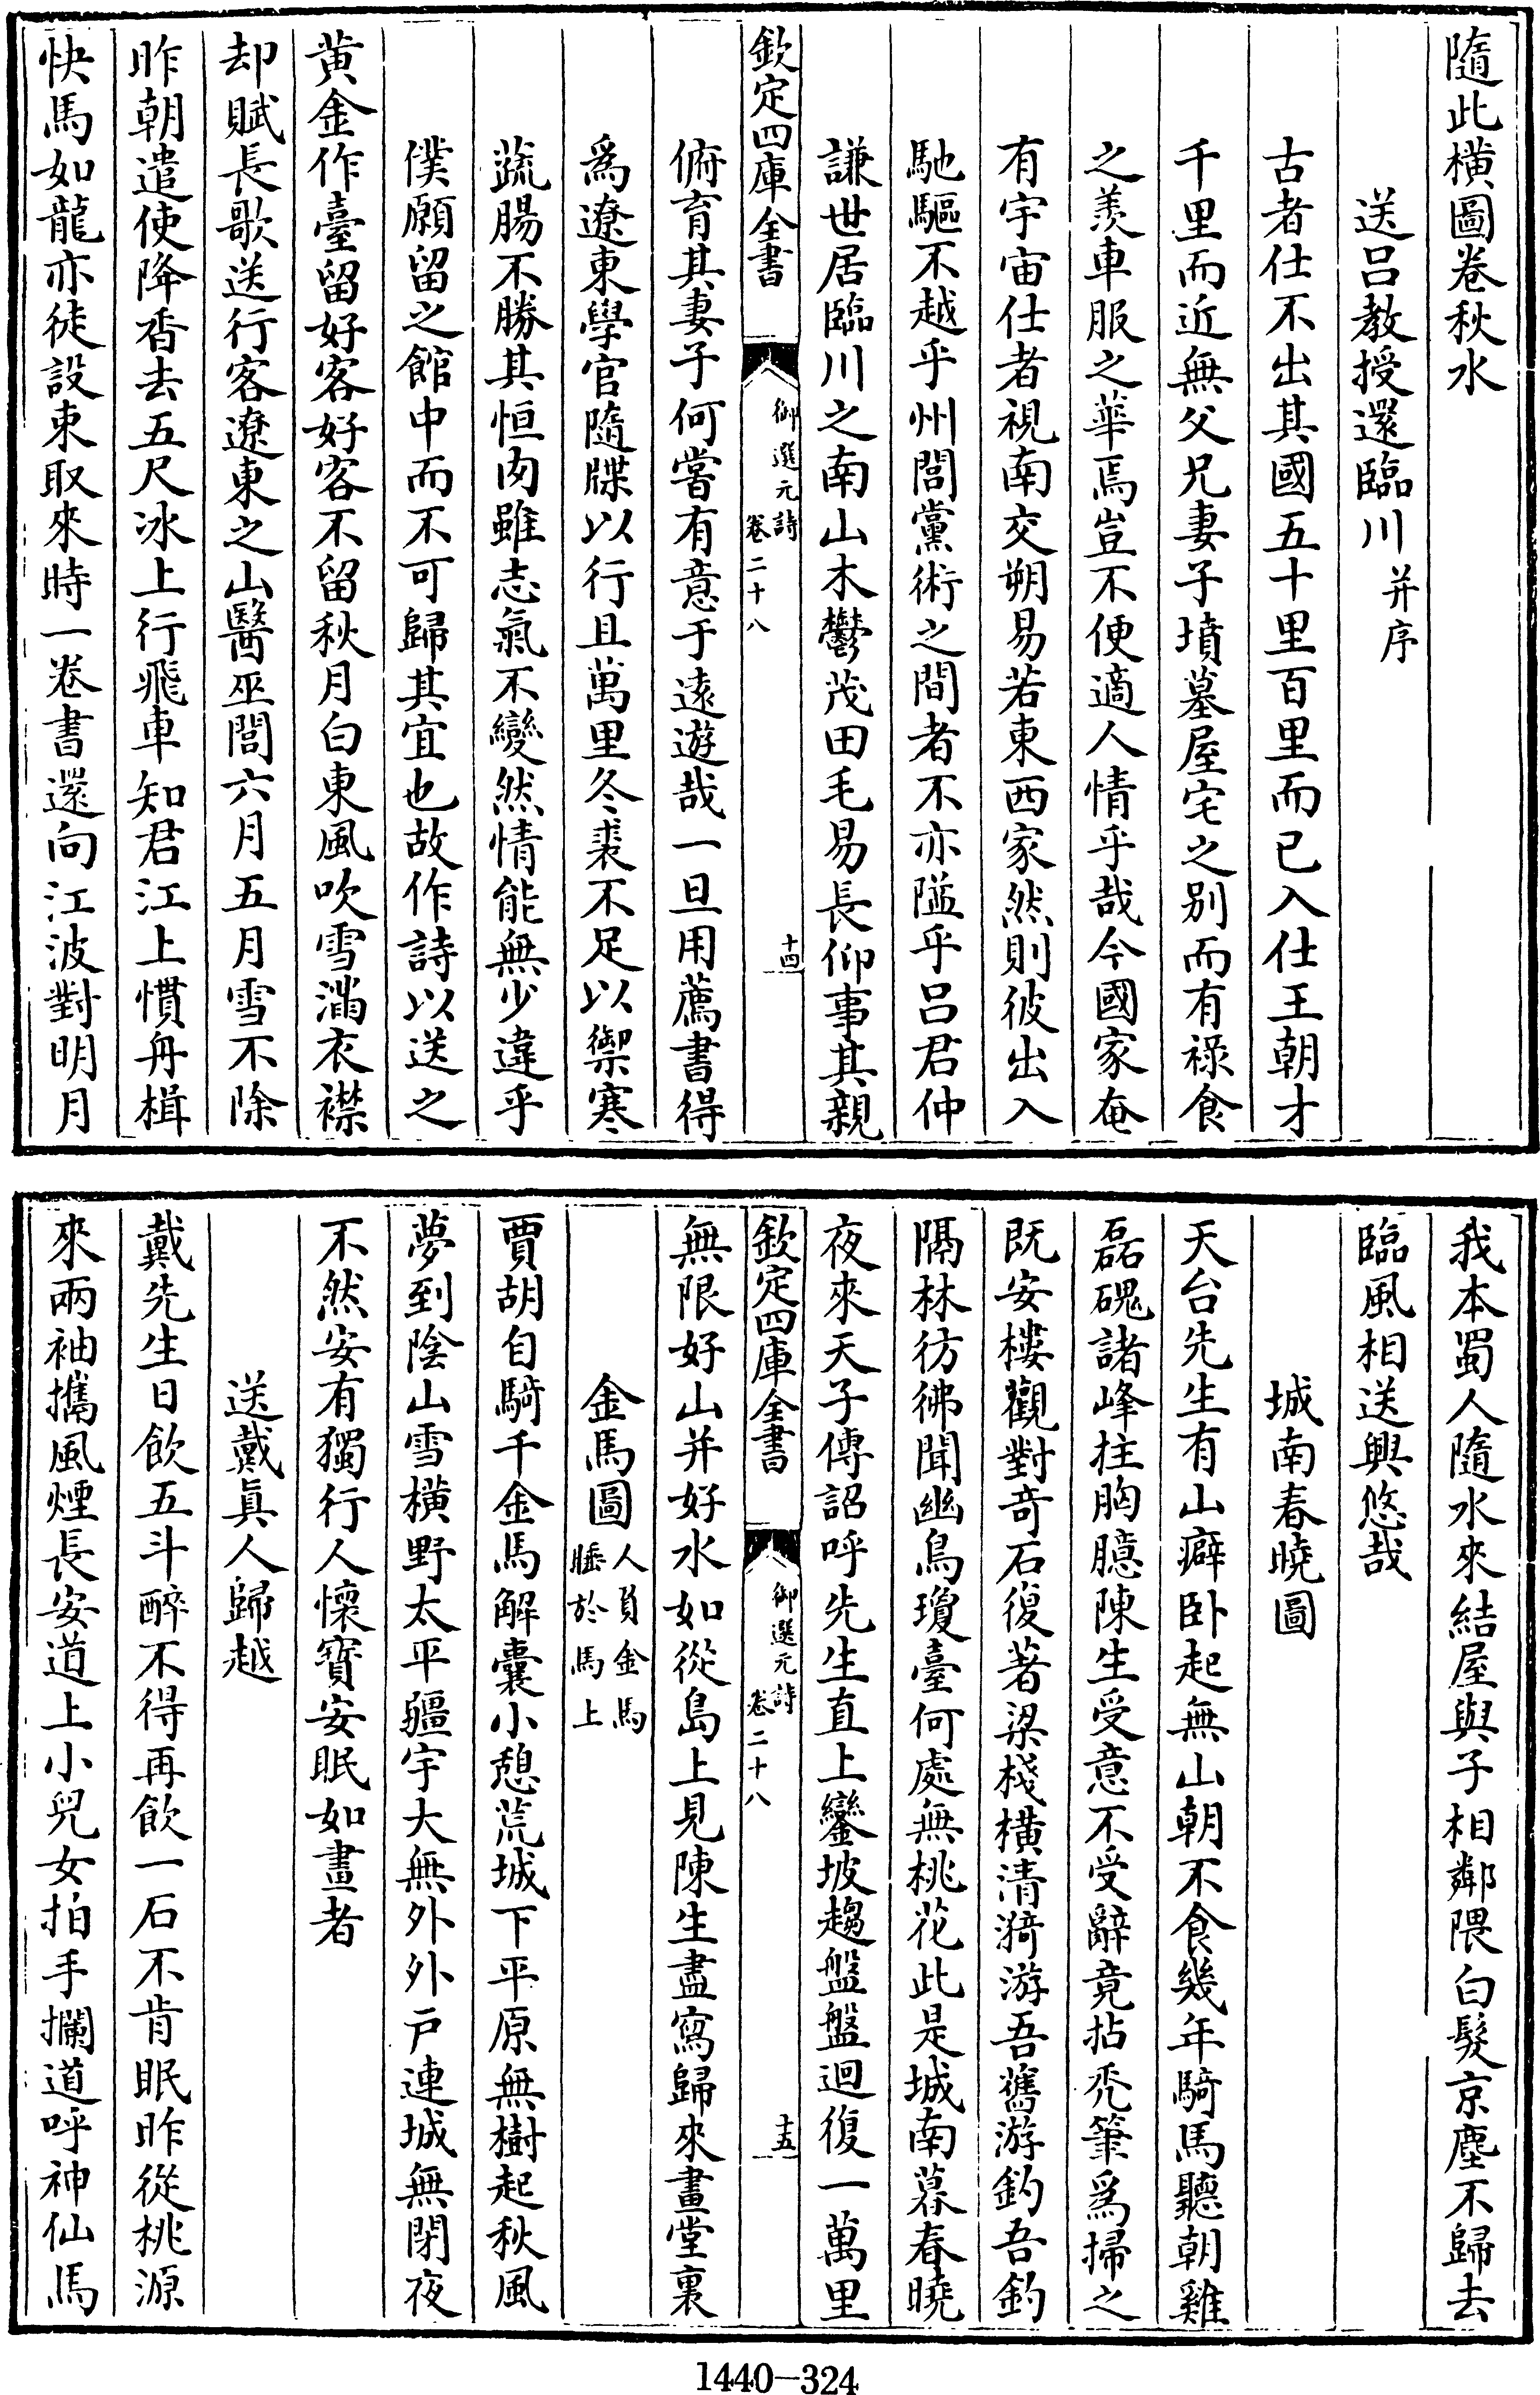 隨此橫圖卷秋水
送吕教授還臨川并序
古者仕不出其國五十里百里而已入仕王朝才
千里而近無父兄妻子墳墓屋宅之别而有祿食
之羨車服之華焉豈不便適人情乎哉今國家奄
有宇宙仕者視南交朔易若東西家然則彼出入
馳驅不越乎州閭黨術之間者不亦隘乎吕君仲
謙世居臨川之南山木鬱茂田毛易長仰事其親
欽定四庫全書
御選元詩
卷二十八
十四
俯育其妻子何嘗有意于遠遊哉一旦用薦書得
爲遼東學官隨牒以行且萬里冬裘不足以禦寒
蔬腸不勝其恒肉雖志氣不變然情能無少違乎
僕願留之館中而不可歸其宜也故作詩以送之
黄金作臺留好客好客不留秋月白東風吹雪滿衣襟
却賦長歌送行客遼東之山醫巫閭六月五月雪不除
昨朝遣使降香去五尺冰上行飛車知君江上慣舟楫
快馬如龍亦徒設東取來時一卷書還向江波對明月
我本蜀人隨水來結屋與子相鄰隈白髮京塵不歸去
臨風相送興悠哉
城南春曉圖
天台先生有山癖卧起無山朝不食幾年騎馬聽朝雞
磊磈諸峰拄胸臆陳生受意不受辭竟拈禿筆爲掃之
既安樓觀對奇石復著梁棧橫清漪游吾舊游釣吾釣
隔林彷彿聞幽鳥瓊臺何處無桃花此是城南暮春曉
夜來天子傳詔呼先生直上鑾坡趨盤盤迴復一萬里
欽定四庫全書
御選元詩
卷二十八
十五
無限好山并好水如從島上見陳生盡寫歸來畫堂裏
金馬圖人負金馬睡於馬上
賈胡自騎千金馬解囊小憩荒城下平原無樹起秋風
夢到陰山雪橫野太平疆宇大無外外戶連城無閉夜
不然安有獨行人懷寶安眠如畫者
送戴真人歸越
戴先生日飲五斗醉不得再飲一石不肯眠昨從桃源
來兩袖攜風煙長安道上小兒女拍手攔道呼神仙馬
1440—324